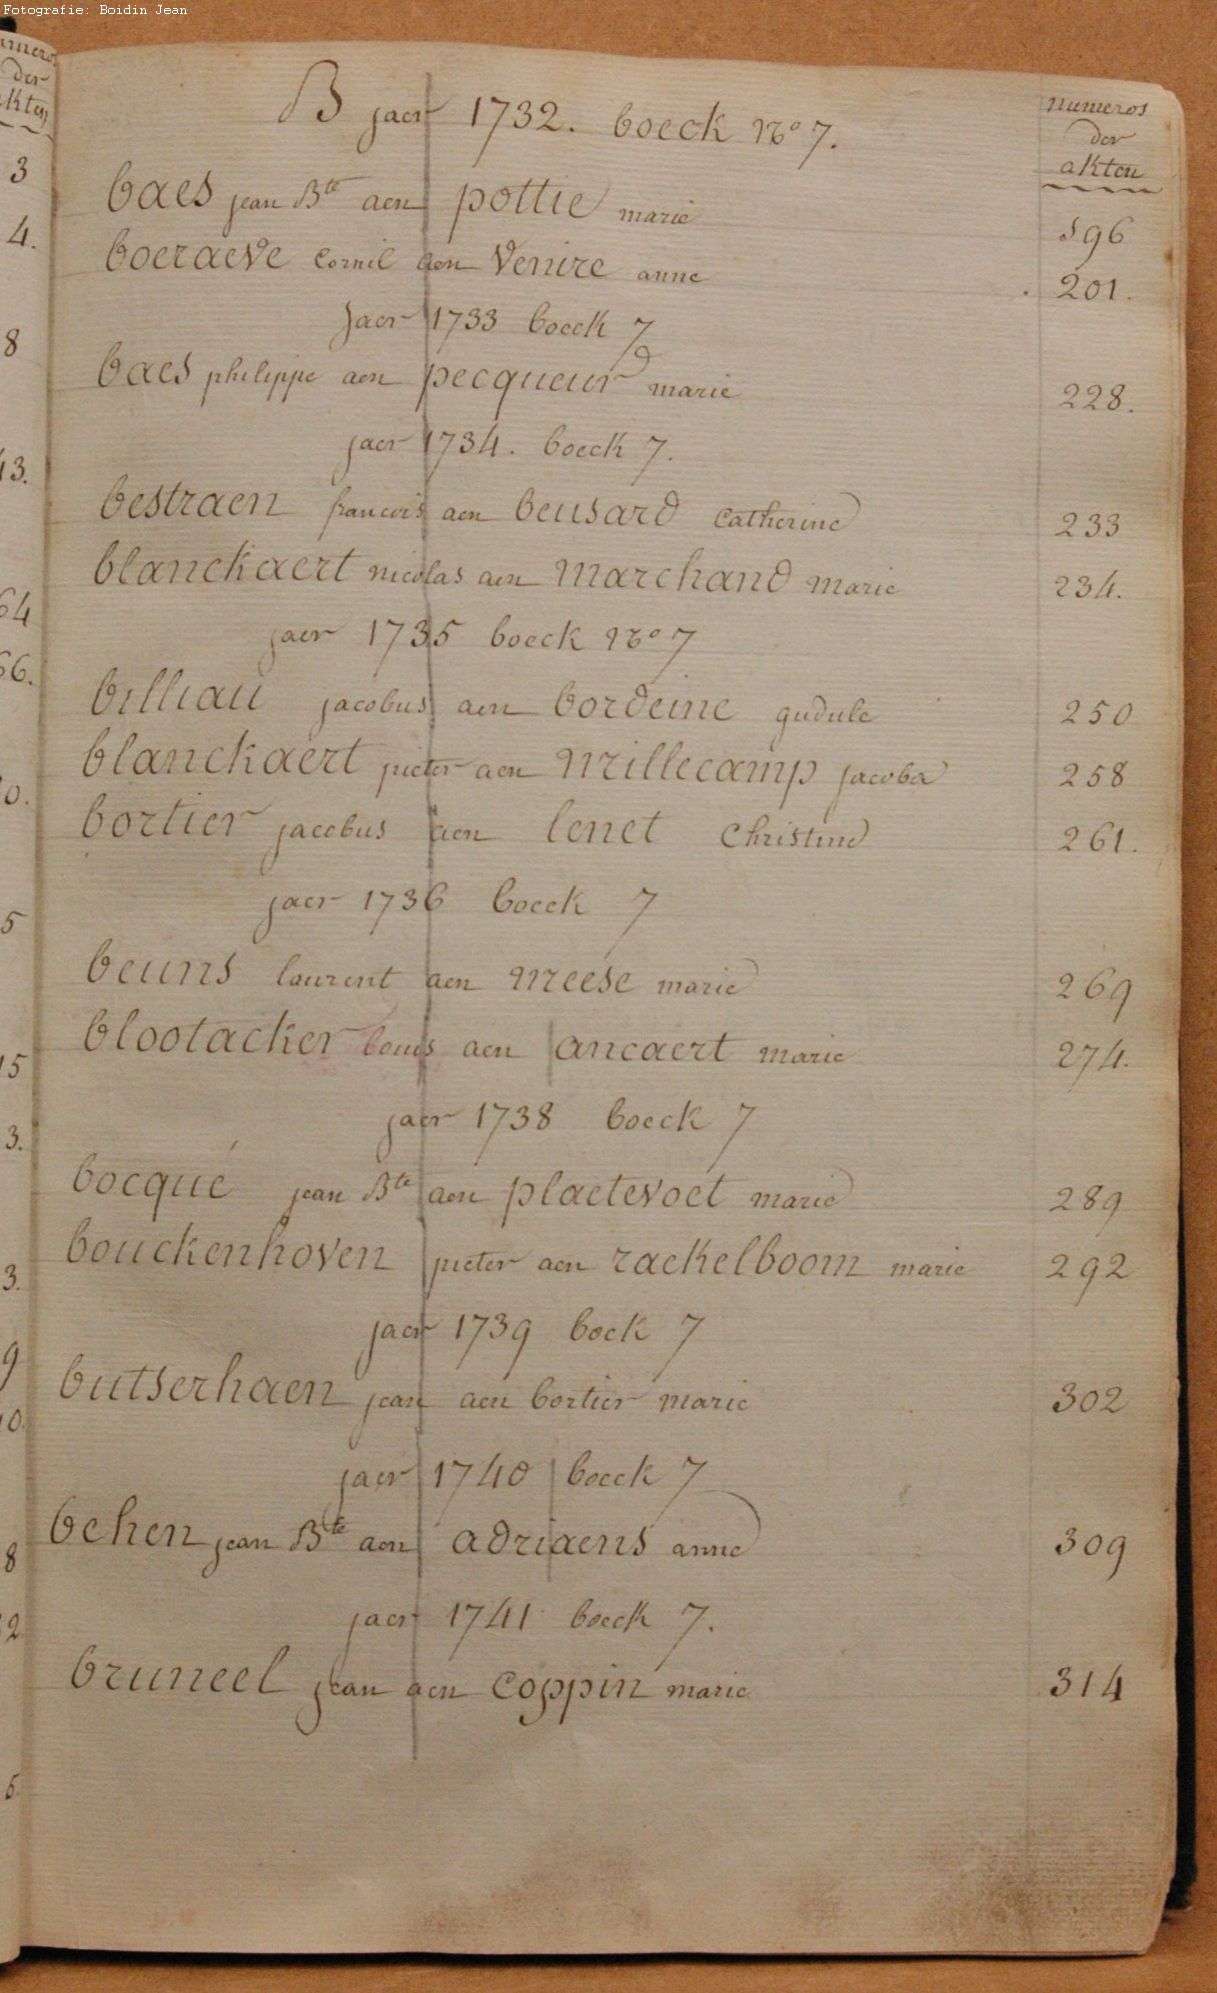 Fotografie: Boidin Jean
numeros
der
akten
3
4.
8
13.
64
66.
0.
5
15
3.
3.
9
10.
8
12
B jaer 1732. boeck No 7.
numeros
der
akten
baes jean Bte aen pottie marie 196
boeraeve Cornil aen Venire anne 201.
Jaer 1733 boeck 7
baes philippe aen pecqueur marie 228.
jaer 1734. boeck 7.
bestraen francois aen beusard Catherine 233
blanckaert nicolas aen marchand marie 234.
jaer 1735 boeck No 7
billiau jacobus aen bordeine gudule 250
blanckaert pieter aen Willecamp jacoba 258
bortier jacobus aen lenet Christine 261.
jaer 1736 boeck 7
beuns laurent aen meese marie 269
blootacker louis aen ancaert marie 274.
jaer 1738 boeck 7
bocqué jean Bte aen plaetevoet marie 289
bouckenhoven pieter aen rackelboom marie 292
jaer 1739 boek 7
butserhaen jean aen bortier marie 302
jaer 1740 boeck 7
behen jean Bte aen adriaens anne 309
jaer 1741 boeck 7.
bruneel jean aen coppin marie 314